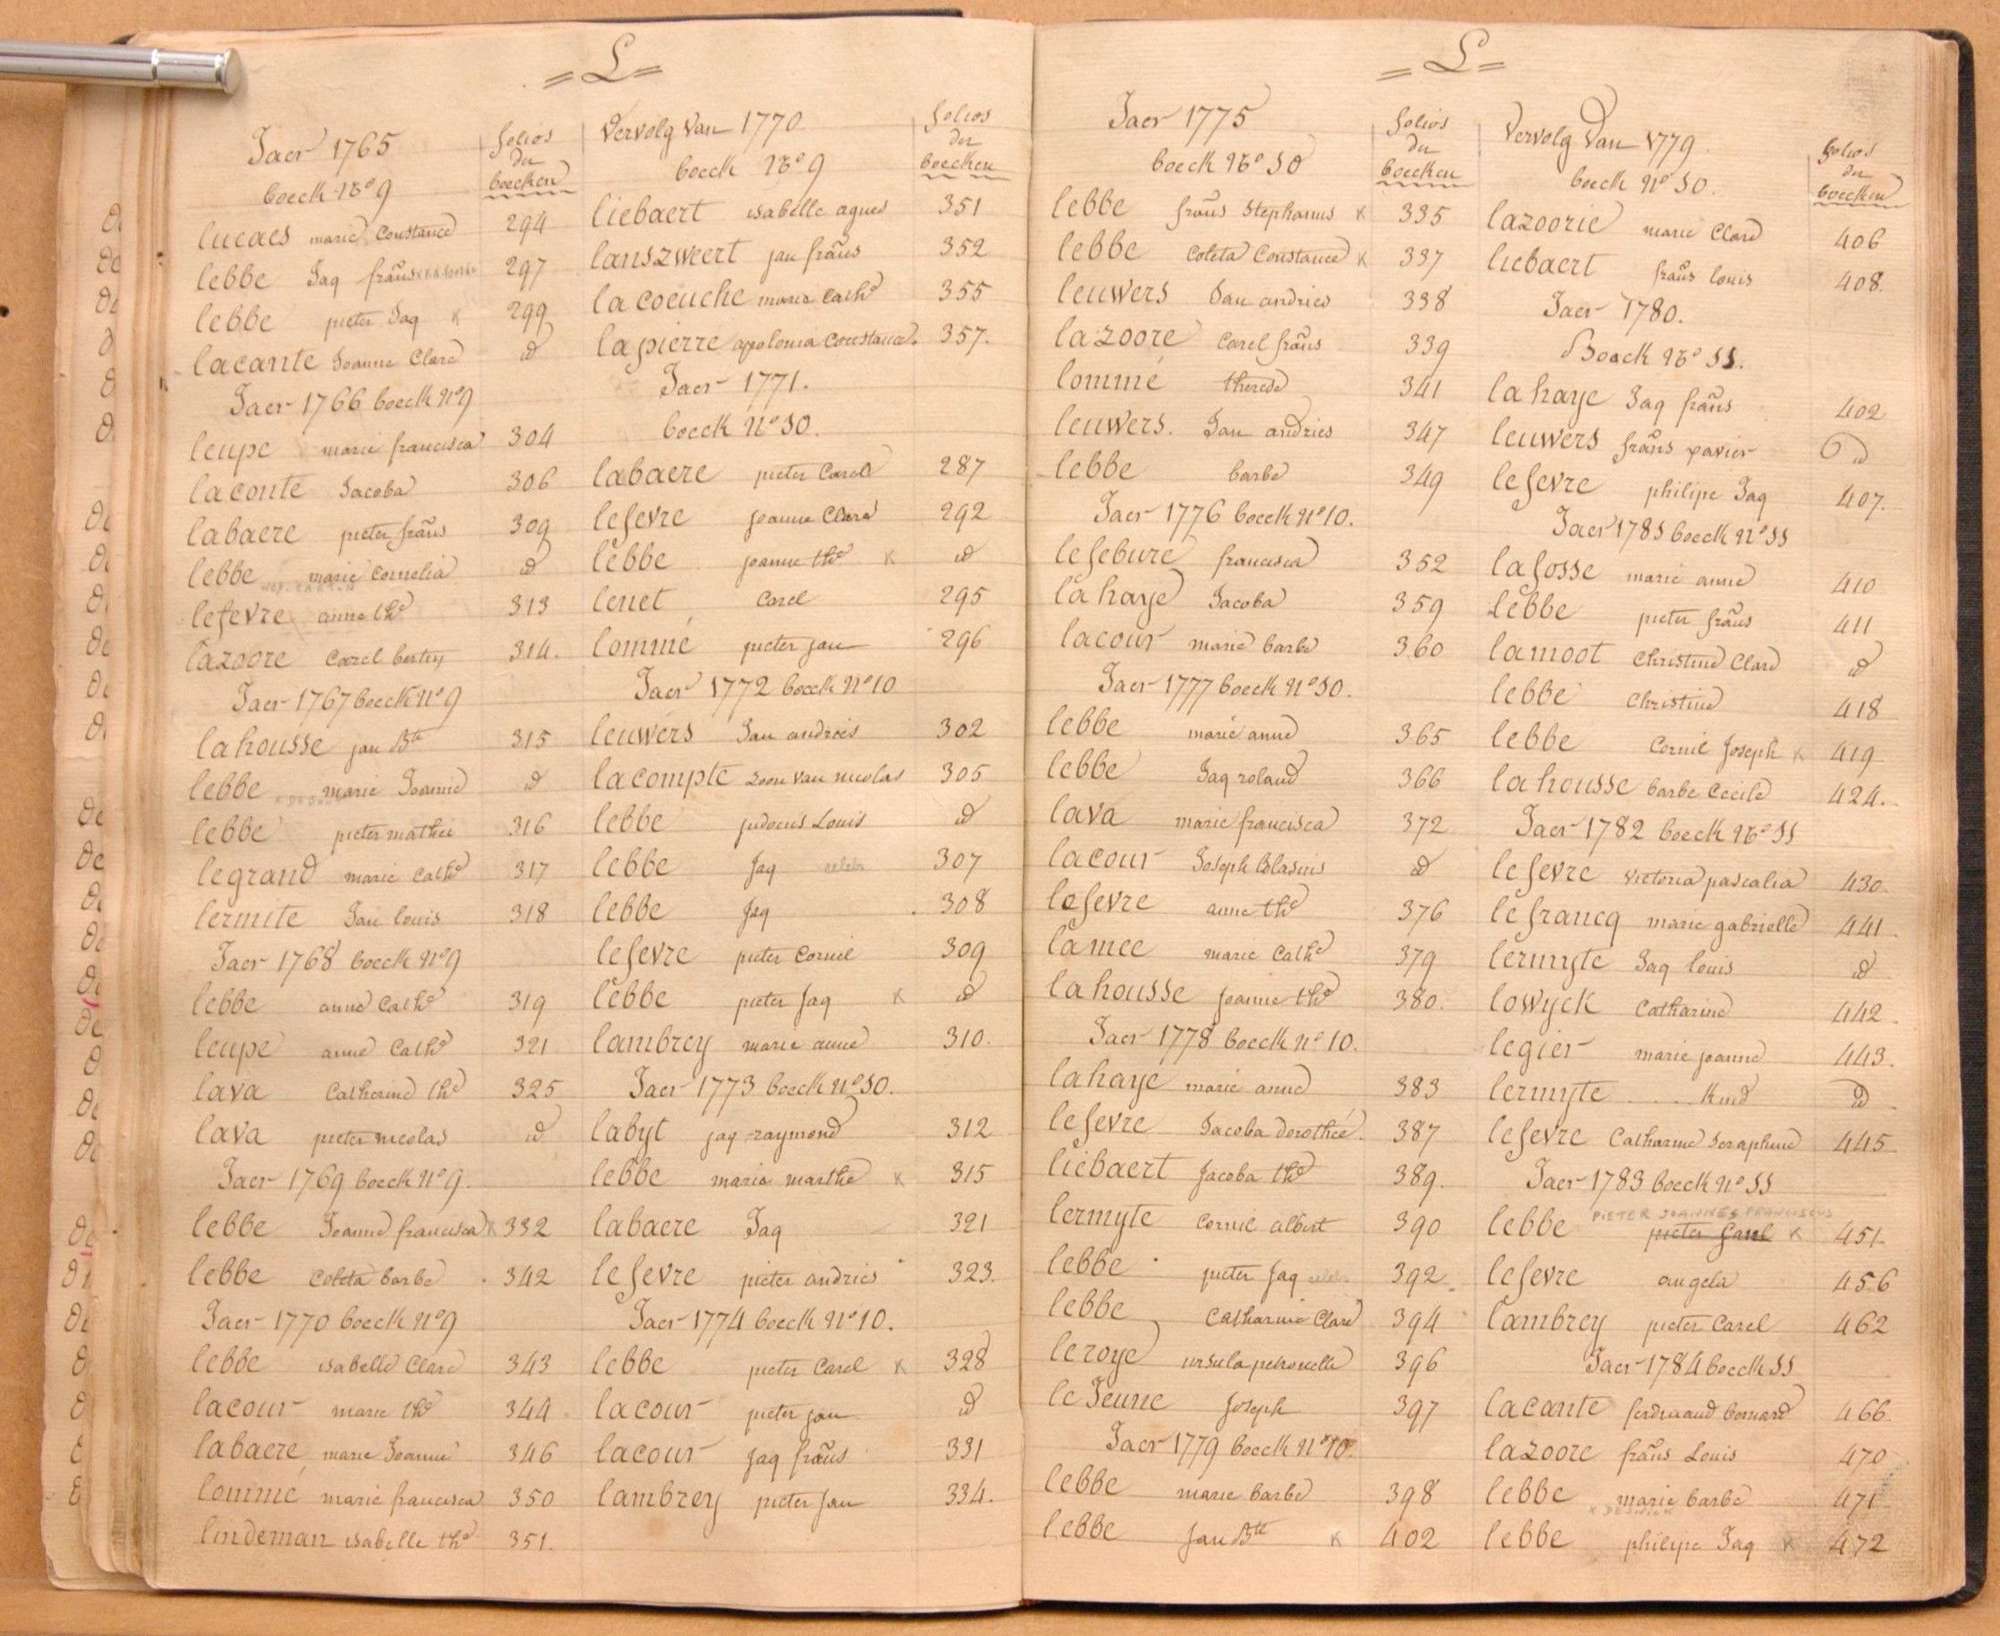 = L =
Jaer 1765
boeck No 9
folios
der
boecken
lucaes marie Constance 294
lebbe Jaq frans 297
lebbe pieter Jaq x 299
lacante Joanne Clare id
Jaer 1766 boeck No 9
leupe marie francisca 304
laconte Jacoba 306
labaere pieter frans 309
lebbe marie Cornelia id
lefevre anne the 313
lazoore Carel bertin 314.
Jaer 1767 boeck No 9
lahousse jan Bte 315
lebbe marie Joanne id
lebbe pieter mathie 316
legrand marie Cathe 317
lermite Jan louis 318
Jaer 1768 boeck No 9
lebbe anne Cathe 319
leupe anne Cathe 321
lava Catherine the 325
lava pieter nicolas id
Jaer 1769 boeck No 9.
lebbe Joanne francisca x 332
lebbe Coleta barbe 342
Jaer 1770 boeck No 9
lebbe isabelle Clare 343
lacour marie the 344
labaere marie Joanne 346
lommé marie francisca 350
lindeman isabelle the 351.
Vervolg Van 1770
boeck No 9
folios
der
boecken
liebaert isabelle agnes 351
lanszweert jan frans 352
lacoeuche marie Cathe 355
lapierre apolonia Constance. 357.
Jaer 1771.
boeck No 10.
labaere pieter Carel 287
lefevre joanne Clare 292
lebbe joanne the x id
lenet Carel 295
lommé pieter jan 296
Jaer 1772 boeck No 10
leuwers Jan andries 302
lacompte zoon van nicolas 305
lebbe judocus Louis id
lebbe Jaq celeb 307
lebbe Jaq 308
lefevre pieter Corneil 309
lebbe pieter Jaq x id
lambrey marie anne 310.
Jaer 1773 boeck No 10.
labyt jaq raymond 312
lebbe maria marthe x 315
labaere Jaq 321
lefevre pieter andries 323.
Jaer 1774 boeck No 10.
lebbe pieter Carel x 328
lacour pieter jan id
lacour jaq frans 331
lambrey pieter jan 334.
= L =
Jaer 1775
boeck No 10
folios
der
boecken
lebbe frans Stephanus x 335
lebbe Coleta Constance x 337
leuwers Jan andries 338
lazoore Carel frans 339
lommé therese 341
leuwers. Jan andries 347
lebbe barbe 349
Jaer 1776 boeck No 10.
lefebure francisca 352
lahaye Jacoba 359
lacour marie barbe 360
Jaer 1777 boeck No 10.
lebbe marie anne 365
lebbe Jaq roland 366
lava marie francisca 372
lacour Joseph Blasius id
lefevre anne the 376
lamee marie Cathe 379
lahousse joanne the 380.
Jaer 1778 boeck No 10.
lahaye marie anne 383
lefevre Jacoba dorothée. 387
liebaert Jacoba the 389.
lermyte Cornil albert 390
lebbe pieter Jaq celeb 392
lebbe Catharine Clare 394
leroye ursula petronelle 396
le Jeune Joseph 397
Jaer 1779 boeck No 10.
lebbe marie barbe 398
lebbe Jan Bte x 402
Vervolg Van 1779
boeck No 10.
folios
der
boecken
lazoorie marie Clare 406
liebaert frans louis 408
Jaer 1780.
Boeck No 11.
lahaye Jaq frans 402
leuwers frans xavier id
lefevre philipe Jaq 407.
Jaer 1781 boeck No 11
lafosse marie anne 410
lebbe pieter frans 411
lamoot Christine Clare id
lebbe Christine 418
lebbe Cornil Joseph x 419
lahousse barbe Cecile 424.
Jaer 1782 boeck No 11
lefevre victoria pascalia 430.
lefrancq marie gabrielle 441
lermyte Jaq louis id
lowyck Catharine 442
legier marie joanne 443.
lermyte .... Kind id
lefevre Catharine Seraphine 445
Jaer 1783 boeck No 11
PIETER JOANNES FRANCISCUS
lebbe pieter Carel x 451
lefevre angela 456
lambrey pieter Carel 462
Jaer 1784 boeck 11
lacante ferdinand bernard 466
lazoore frans Louis 470
lebbe marie barbe 471
lebbe philipe Jaq x 472